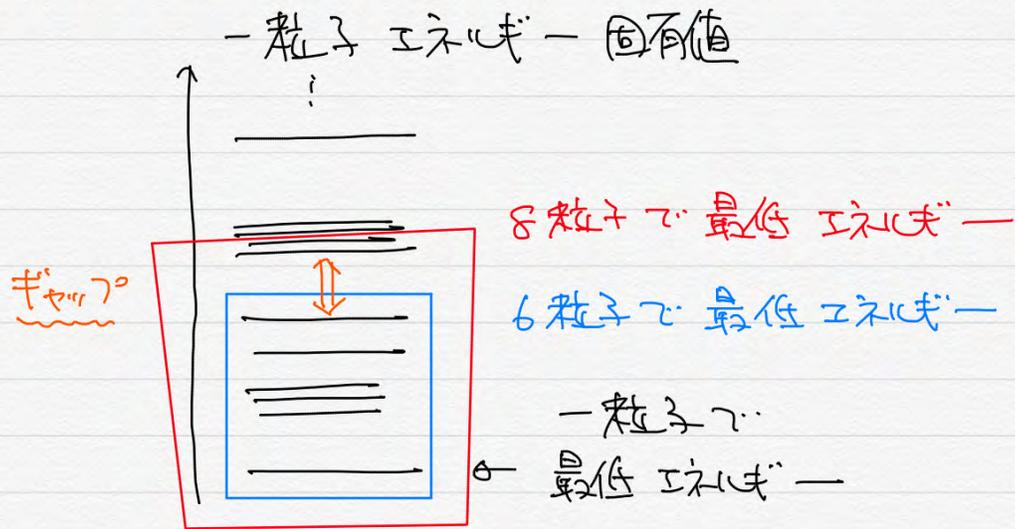 一粒子 エネルギー 固有値
8粒子で 最低 エネルギー
ギャップ
6粒子で 最低 エネルギー
一粒子で
最低 エネルギー